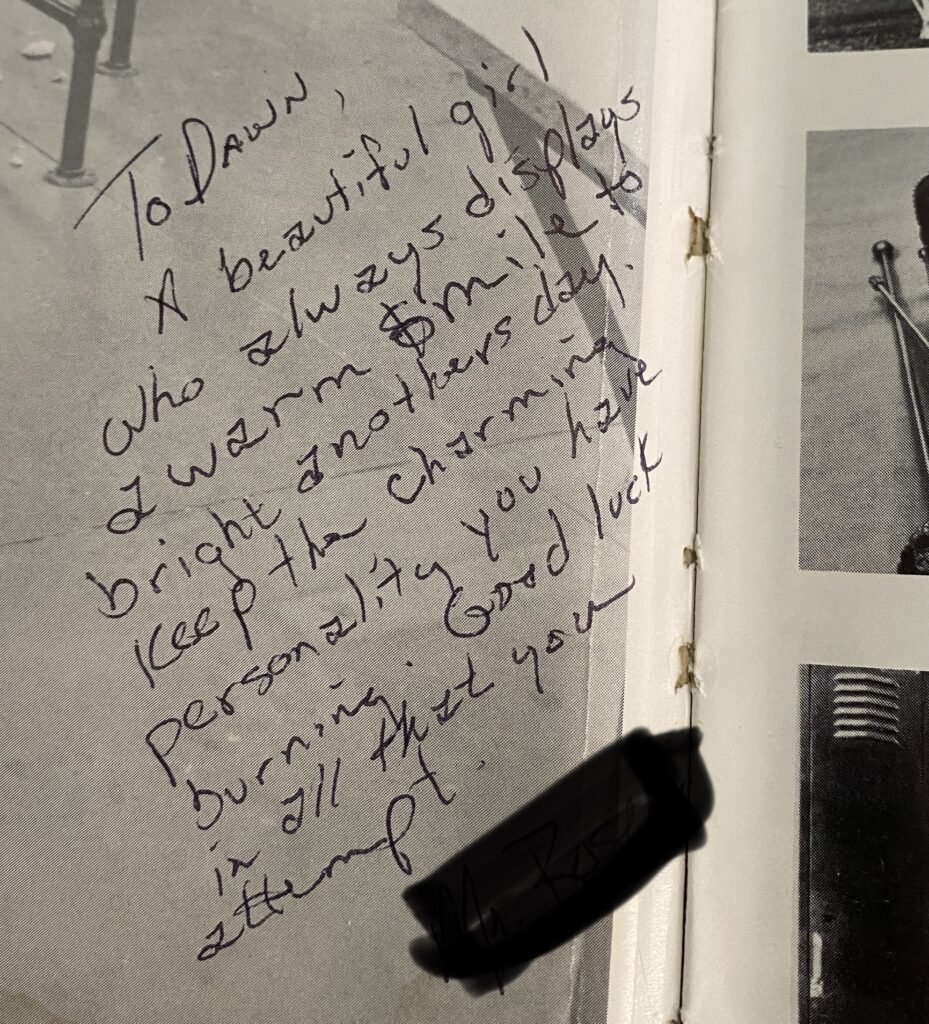 To Dawn,
A beautiful girl
who always displays
a warm smile to
bright anothers day.
Keep the charming
personality you have
burning. Good luck
in all that you
attempt.